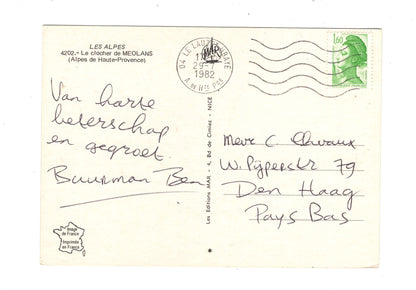 LES ALPES
4202.- Le clocher de MEOLANS
(Alpes de Haute-Provence)
Van harte
beterschap
en gegroet
Buurman Ben
Image
de France
Imprimée
en France
Les Editions MAR - 4, Bd de Cimiez - NICE
MAR
04 LE LAUZET-UBAYE
29-7
1982
A. de Htes Pce
1,60
Mevr C. Clavaux
W. Pijperstr 79
Den Haag
Pays Bas